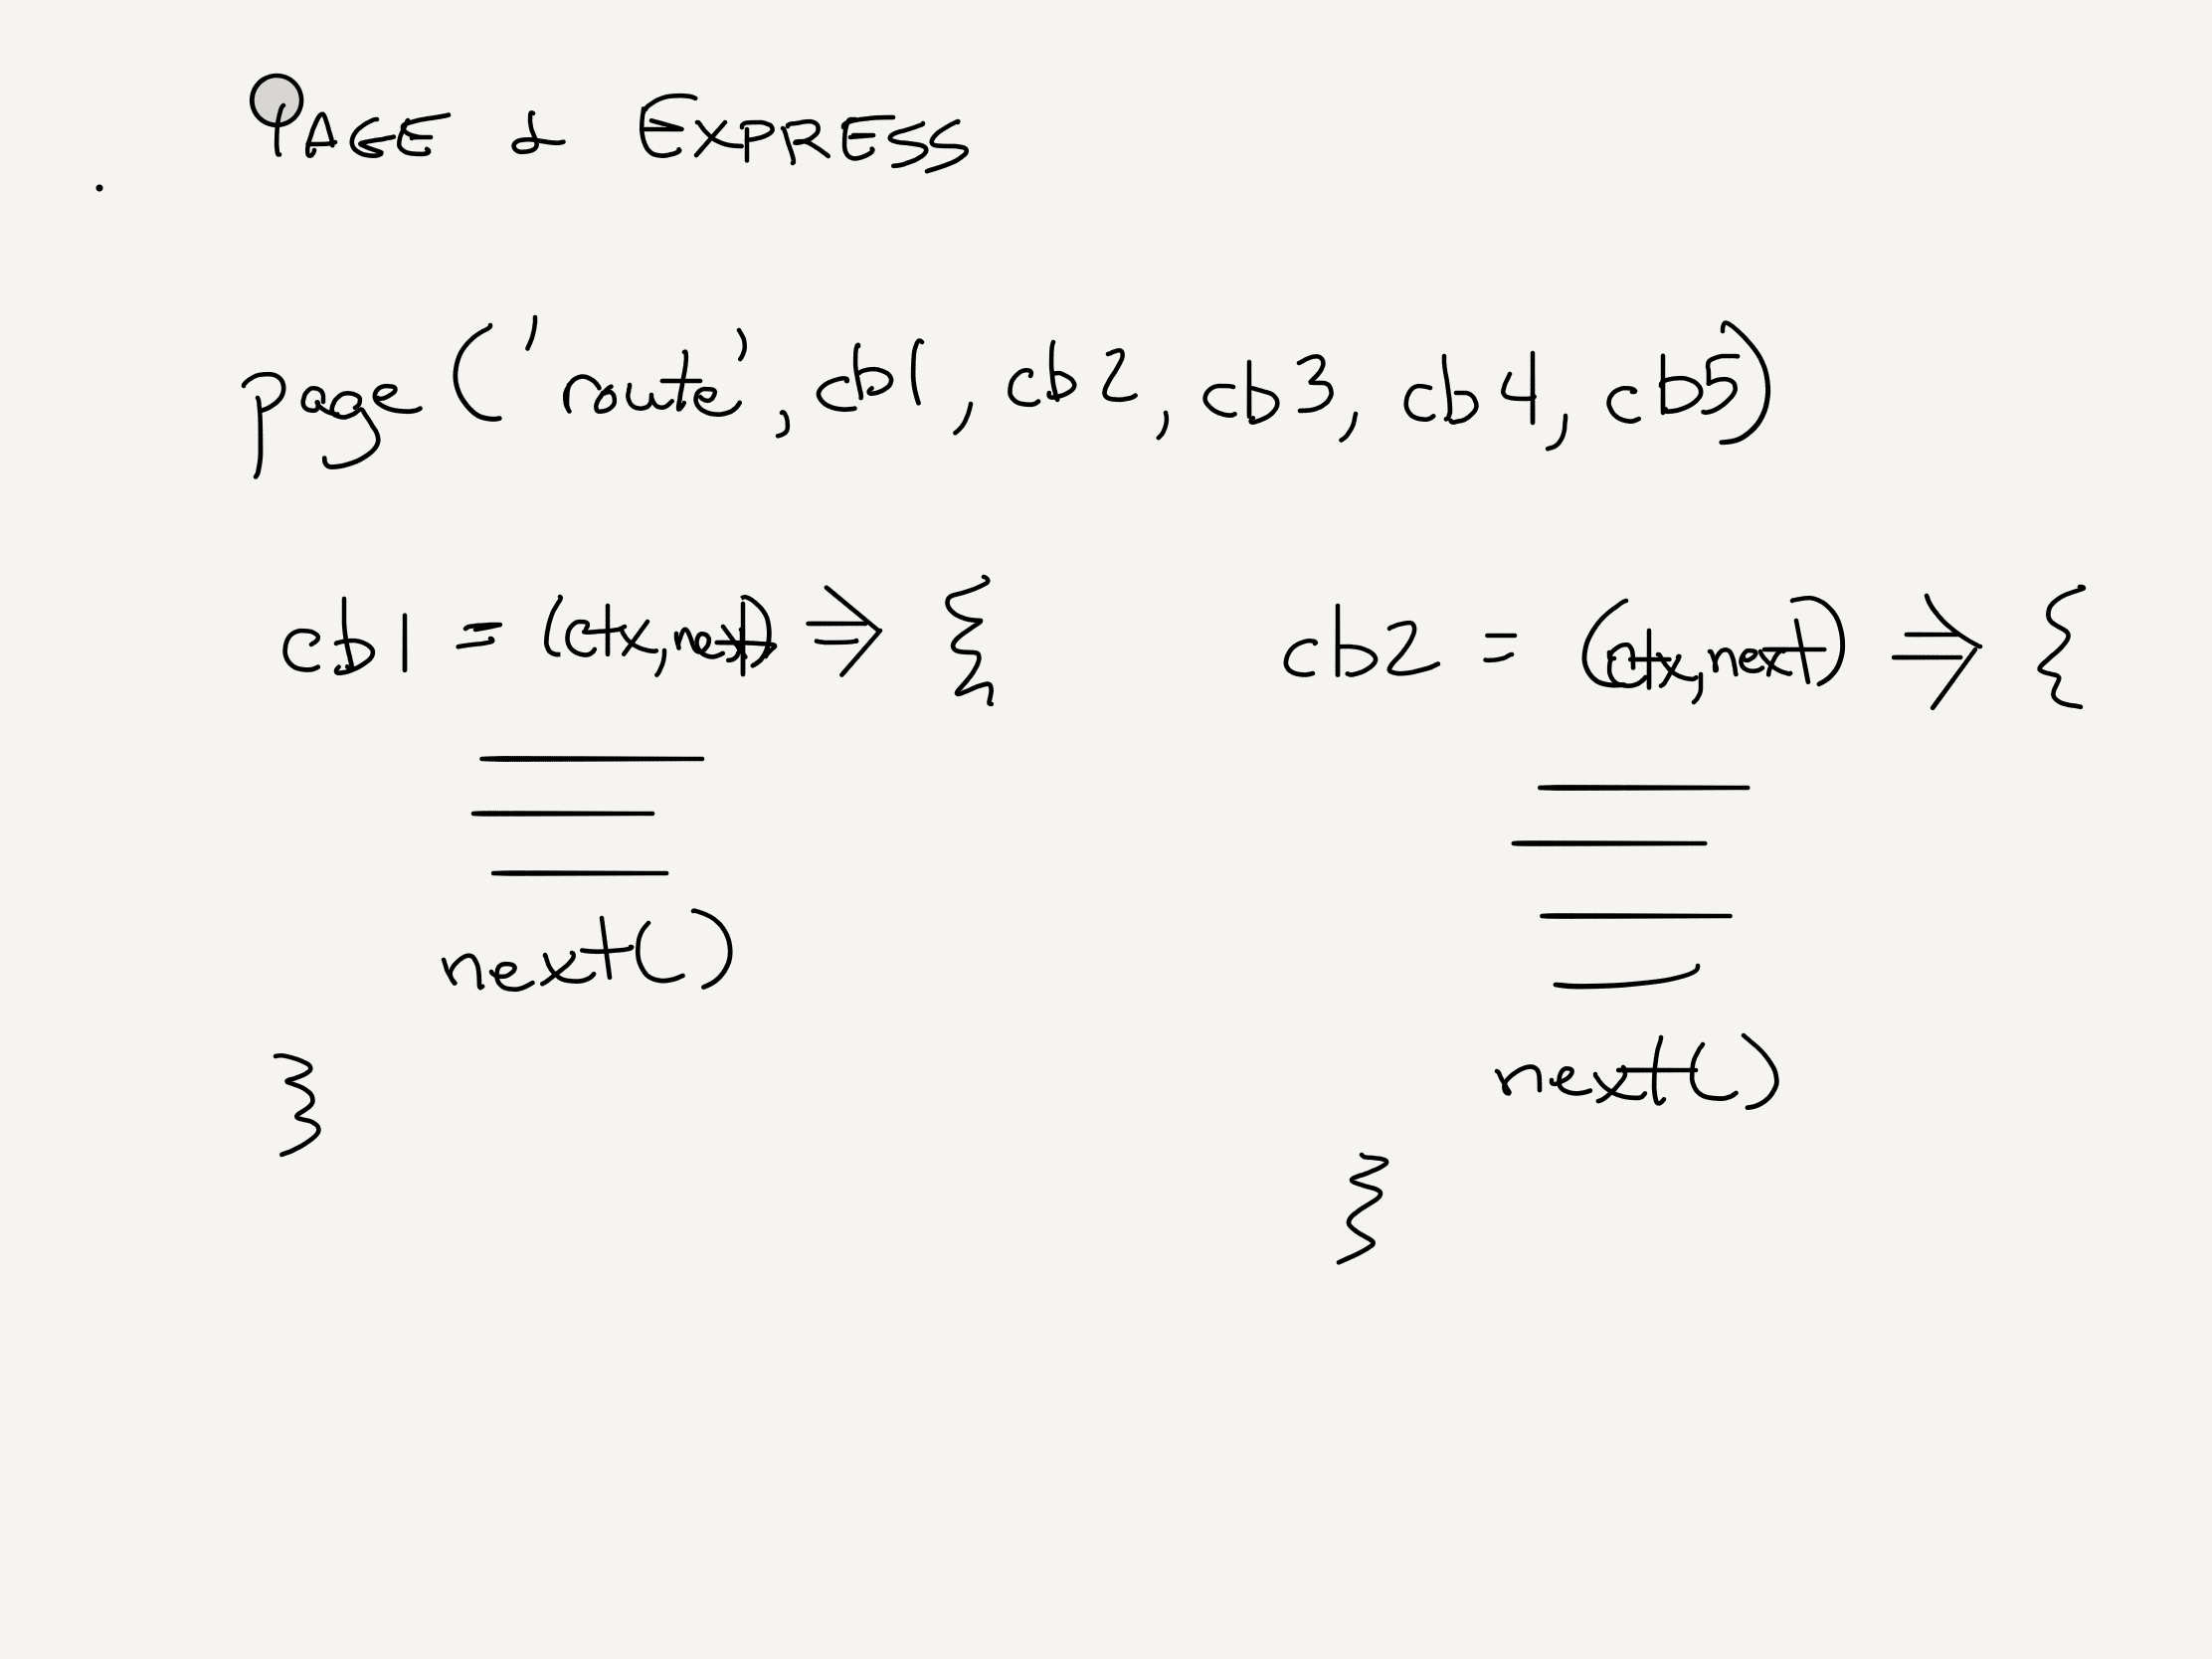 PAGE & EXPRESS
page('route', cb1, cb2, cb3, cb4, cb5)
cb1 = (ctx, next) => {
next()
}
cb2 = (ctx, next) => {
next()
}